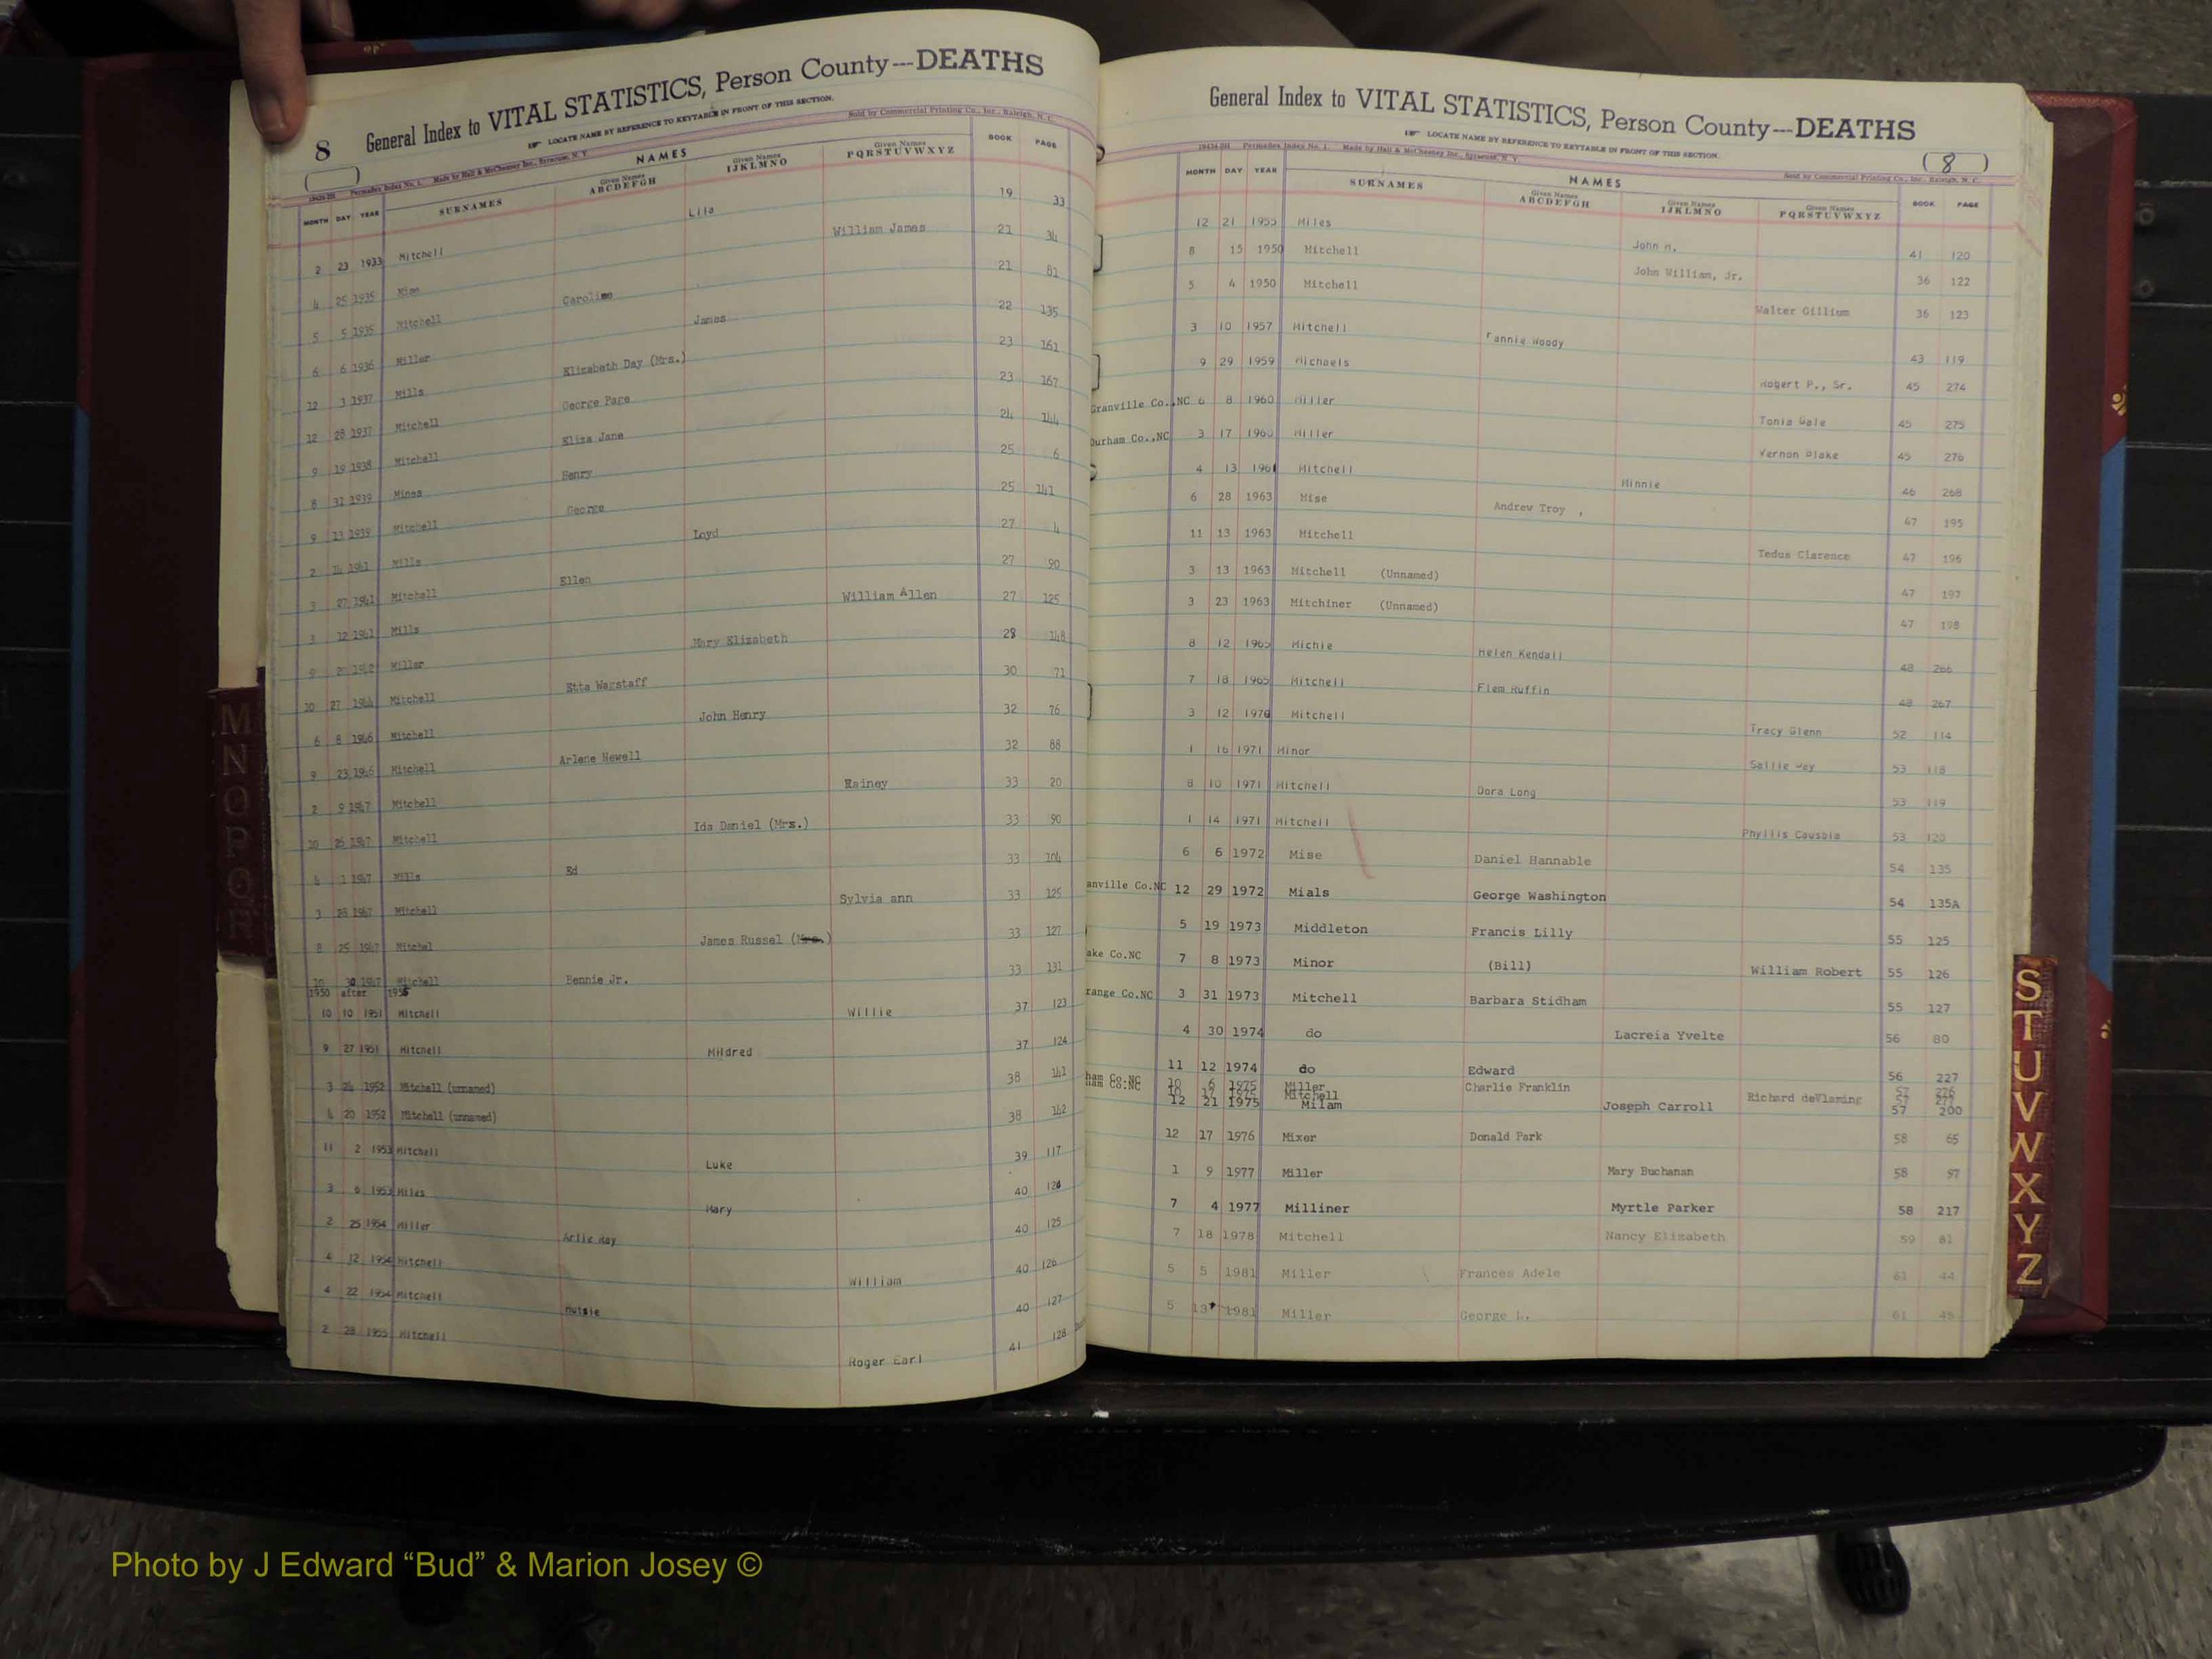 8 General Index to VITAL STATISTICS, Person County---DEATHS
LOCATE NAME BY REFERENCE TO KEYTABLE IN FRONT OF THIS SECTION.
Sold by Commercial Printing Co., Inc., Raleigh, N. C.
Made by Hall & McChesney Inc., Syracuse, N. Y.
MONTH DAY YEAR SURNAMES NAMES Given Names ABCDEFGH Given Names IJKLMNO Given Names PQRSTUVWXYZ BOOK PAGE
2 23 1933 Mitchell Lila 19 33
4 25 1935 William James 21 34
5 5 1935 Mitchell Caroline 21 81
6 6 1936 Miller James 22 135
12 1 1937 Mills Elizabeth Day (Mrs.) 23 161
12 28 1937 Mitchell George Page 23 167
9 19 1938 Mitchell Eliza Jane 24 144
8 31 1939 Mines Henry 25 6
9 13 1939 Mitchell George 25 141
2 14 1941 Mills Loyd 27 4
3 27 1941 Mitchell Ellen 27 90
3 12 1941 Mills William Allen 27 125
9 Miller Mary Elizabeth 28 148
10 27 1944 Mitchell Etta Wagstaff 30 71
6 8 1946 Mitchell John Henry 32 76
9 23 1946 Mitchell Arlene Newell 32 88
2 9 1947 Mitchell Rainey 33 20
10 25 1947 Mitchell Ida Daniel (Mrs.) 33 90
4 1 1947 Mills Ed 33 104
3 28 1947 Mitchell Sylvia ann 33 125
8 25 1947 Mitchel James Russel (Mrs.) 33 127
10 30 1947 Mitchell Bennie Jr. 33 131
1950 after 1955
10 10 1951 Mitchell Willie 37 123
9 27 1951 Mitchell Mildred 37 124
3 24 1952 Mitchell (unnamed) 38 141
4 20 1952 Mitchell (unnamed) 38 142
11 2 1953 Mitchell Luke 39 117
3 6 1953 Miles Mary 40 124
2 25 1954 Miller Arlie Ray 40 125
4 12 1954 Mitchell William 40 126
4 22 1954 Mitchell Hutsie 40 127
2 28 1955 Mitchell Roger Earl 41 128
General Index to VITAL STATISTICS, Person County---DEATHS
LOCATE NAME BY REFERENCE TO KEYTABLE IN FRONT OF THIS SECTION.
(8)
Permadex Index No. 1. Made by Hall & McChesney Inc., Syracuse, N. Y.
Sold by Commercial Printing Co., Inc., Raleigh, N. C.
MONTH DAY YEAR SURNAMES NAMES Given Names ABCDEFGH Given Names IJKLMNO Given Names PQRSTUVWXYZ BOOK PAGE
12 21 1955 Miles John H. 41 120
8 15 1950 Mitchell John William, Jr. 36 122
5 4 1950 Mitchell Walter Gillium 36 123
3 10 1957 Mitchell Fannie Woody 43 119
9 29 1959 Michaels Robert P., Sr. 45 274
Granville Co.,NC 6 8 1960 Miller Tonia Gale 45 275
Durham Co.,NC 3 17 1960 Miller Vernon Blake 45 276
4 13 1961 Mitchell Minnie 46 268
6 28 1963 Mise Andrew Troy , 47 195
11 13 1963 Mitchell Tedus Clarence 47 196
3 13 1963 Mitchell (Unnamed) 47 197
3 23 1963 Mitchiner (Unnamed) 47 198
8 12 1965 Michie Helen Kendall 48 266
7 18 1965 Mitchell Flem Ruffin 48 267
3 12 1970 Mitchell Tracy Glenn 52 114
1 16 1971 Minor Sallie Day 53 118
8 10 1971 Mitchell Dora Long 53 119
1 14 1971 Mitchell Phyllis Causbia 53 120
6 6 1972 Mise Daniel Hannable 54 135
anville Co.NC 12 29 1972 Mials George Washington 54 135A
5 19 1973 Middleton Francis Lilly 55 125
ake Co.NC 7 8 1973 Minor (Bill) William Robert 55 126
range Co.NC 3 31 1973 Mitchell Barbara Stidham 55 127
4 30 1974 do Lacreia Yvelte 56 80
11 12 1974 do Edward 56 227
ham Co.NC 10 6 1975 Miller Charlie Franklin 57 276
ham Co.NC 10 17 1975 Mitchell Richard deVlaming 57 277
12 21 1975 Milam Joseph Carroll 57 200
12 17 1976 Mixer Donald Park 58 65
1 9 1977 Miller Mary Buchanan 58 97
7 4 1977 Milliner Myrtle Parker 58 217
7 18 1978 Mitchell Nancy Elizabeth 59 81
5 5 1981 Miller Frances Adele 61 44
5 13 1981 Miller George L. 61 45
M
N
O
P
Q
R
S
T
U
V
W
X
Y
Z
Photo by J Edward “Bud” & Marion Josey ©